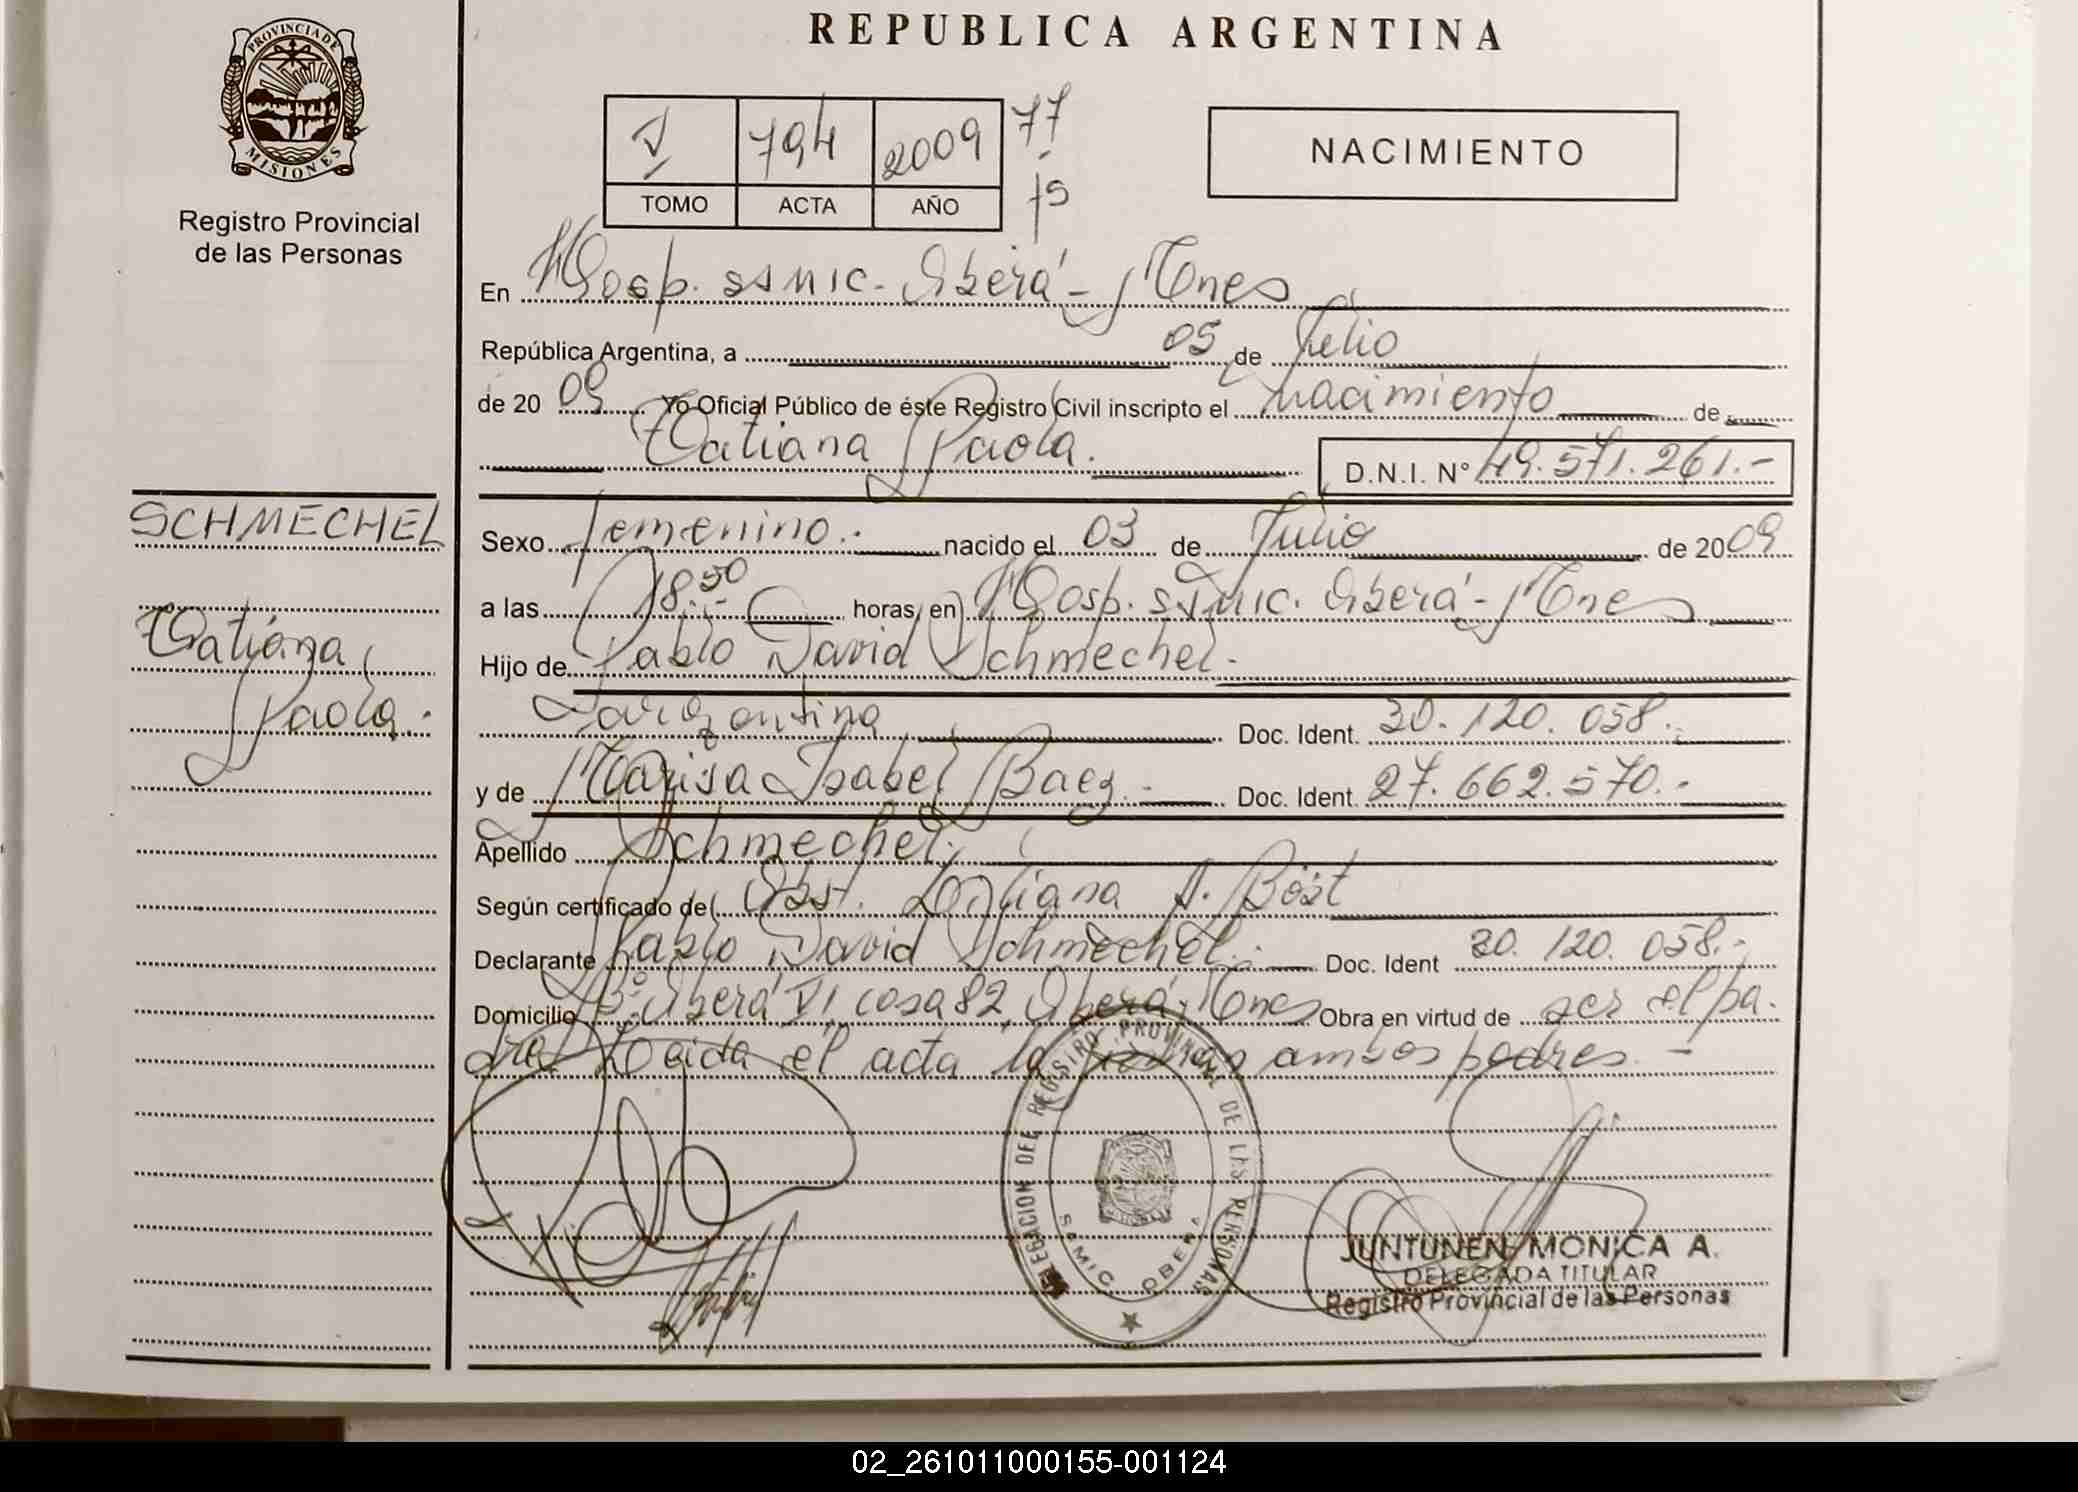 REPUBLICA ARGENTINA
PROVINCIA DE
MISIONES
Registro Provincial
de las Personas
V 794 2009 77
TOMO ACTA AÑO
NACIMIENTO
En Hosp. SAMIC. Oberá - Mnes
República Argentina, a 05 de Julio
de 20 09 Yo Oficial Público de éste Registro Civil inscripto el nacimiento de
Tatiana Paola. D.N.I. Nº 49.571.261.-
SCHMECHEL
Tatiana
Paola.
Sexo femenino.- nacido el 03 de Julio de 2009
a las 18:50 horas, en Hosp. SAMIC. Oberá - Mnes
Hijo de Pablo David Schmechel.-
argentina Doc. Ident. 30.120.058.-
y de Marisa Isabel Baez.- Doc. Ident. 27.662.570.-
Apellido Schmechel.
Según certificado de Obst. Liliana A. Böst
Declarante Pablo David Schmechel.- Doc. Ident 30.120.058.-
Domicilio Bº Oberá VI, casa 82, Oberá - Mnes Obra en virtud de ser el pa-
dre. Leida el acta la firman ambos padres.-
DELEGACION DEL REGISTRO PROVINCIAL DE LAS PERSONAS
SAMIC OBERA
JUNTUNEN MONICA A.
DELEGADA TITULAR
Registro Provincial de las Personas
02_261011000155-001124